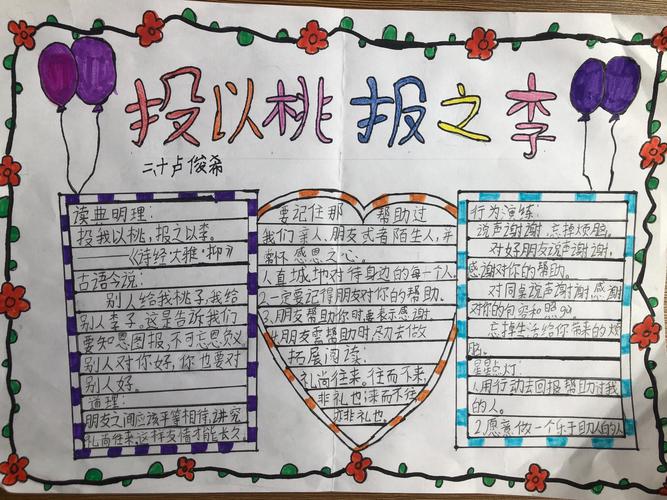 投以桃报之李
二十卢俊希
读典明理:
投我以桃,报之以李。
——《诗经·大雅·抑》
古语今说:
别人给我桃子,我给
别人李子。这是告诉我们
要知恩图报,不可忘恩负义
别人对你好,你也要对
别人好。
道理:
朋友之间应该平等相待,讲究
礼尚往来,这样友情才能长久。
要记住那 帮助过
我们亲人、朋友或者陌生人,并
怀感恩之心。
人真诚地对待身边的每一个人
2.一定要记得朋友对你的帮助。
3.朋友帮助你时要表示感谢。
4.朋友需帮助时尽力去做
拓展阅读:
礼尚往来。往而不来,
非礼也;来而不往,
亦非礼也。
行为演练:
说声谢谢,忘掉烦恼。
对好朋友说声谢谢,
感谢对你的帮助。
对同桌说声谢谢,感谢
对你的包容和照顾
忘掉生活给你带来的烦
恼。
星星点灯:
1.用行动去回报帮助过我
的人。
2.愿意做一个乐于助人的人